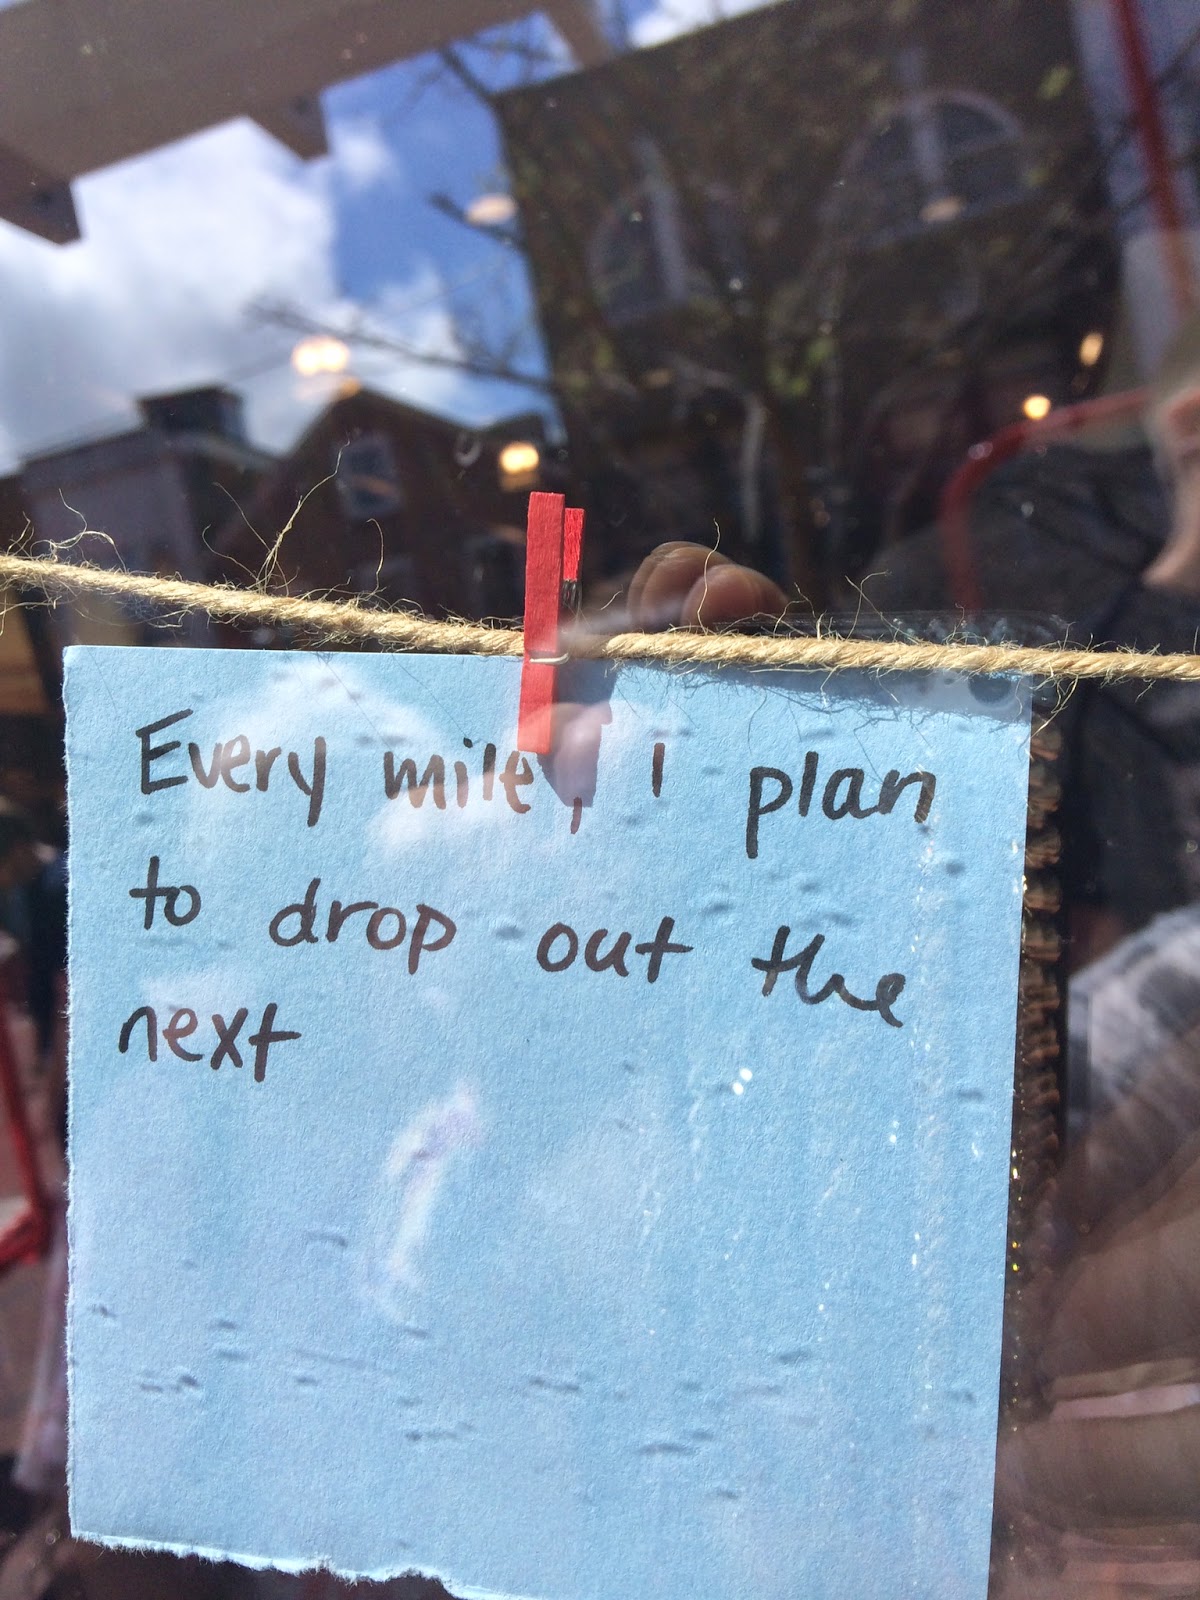 Every mile, I plan
to drop out the
next